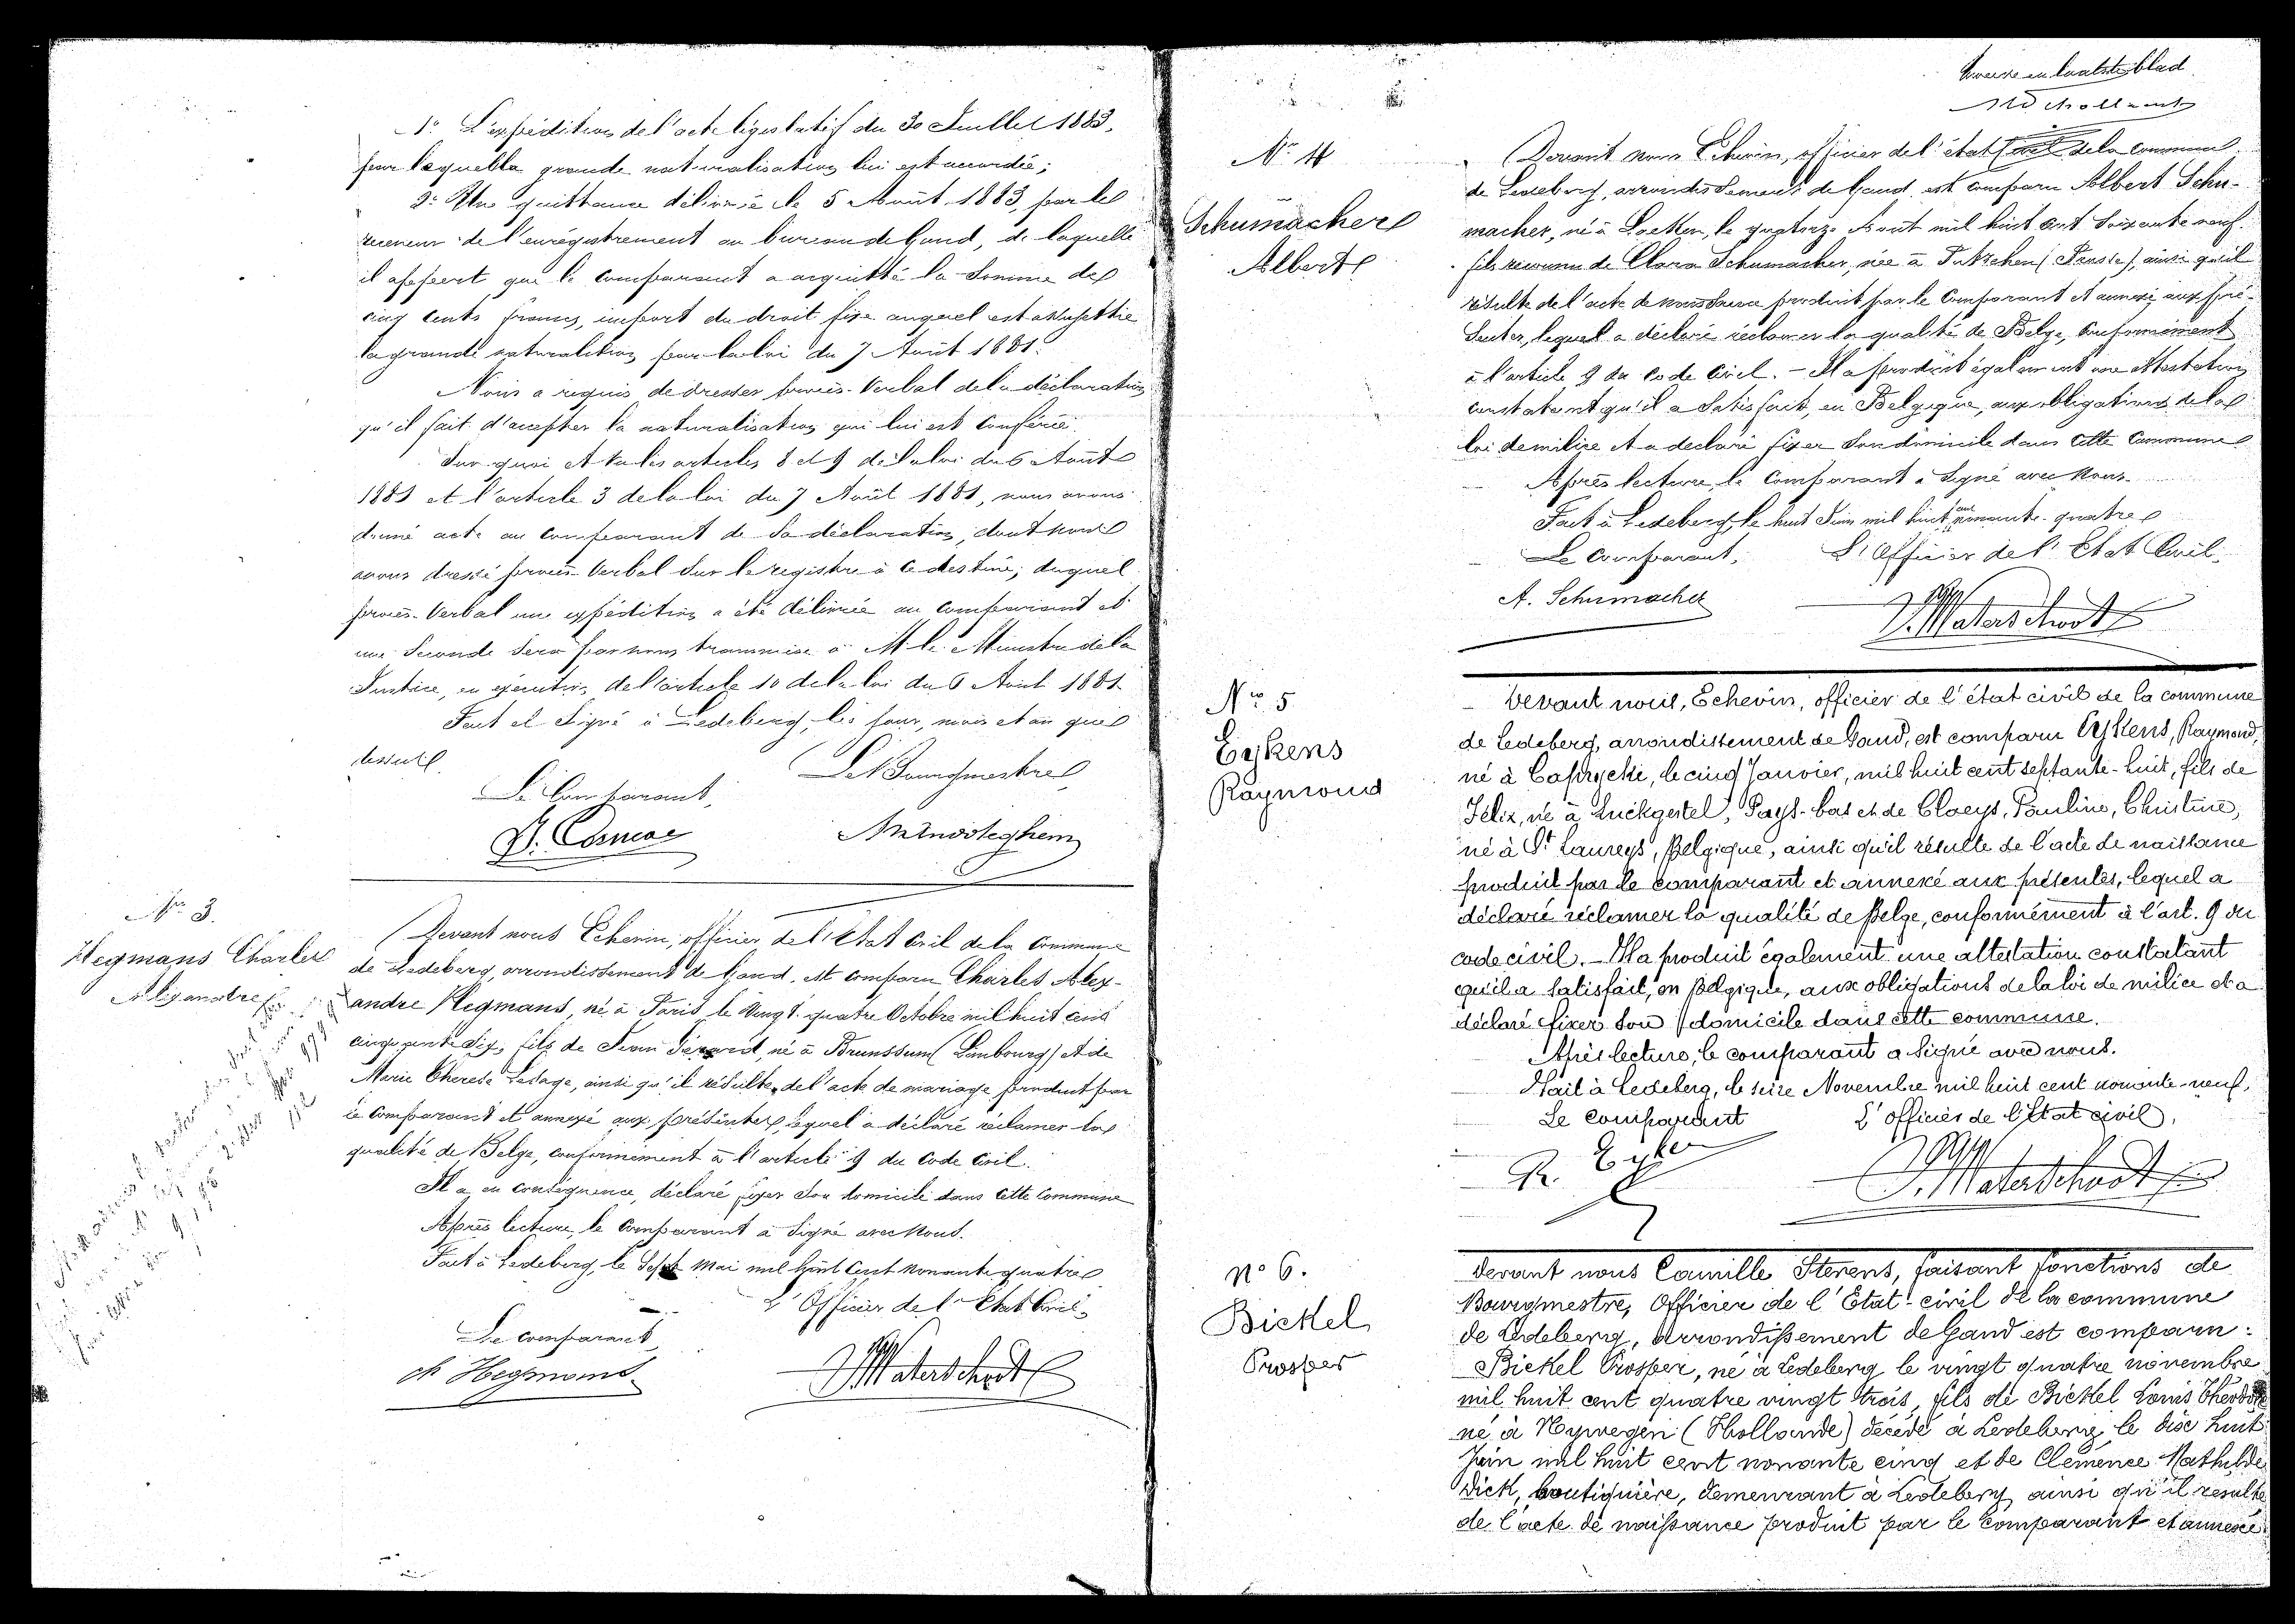 1° L'expédition de l'acte législatif du 30 Juillet 1883,
par laquelle la grande naturalisation lui est accordée;
2° Une quittance délivrée le 5 Août 1883, par le
receveur de l'enrégistrement au bureau de Gand, de laquelle
il appert que le comparant a acquitté la somme de
cinq cents francs, import du droit fixe auquel est assujettie
la grande naturalisation par la loi du 7 Août 1881.
Nous a requis de dresser procès-verbal de la déclaration
qu'il fait d'accepter la naturalisation qui lui est conférée.
Sur quoi et vu les articles 8 et 9 de la loi du 6 Août
1881 et l'article 3 de la loi du 7 Août 1881, nous avons
donné acte au comparant de sa déclaration, dont nous
avons dressé procès-verbal sur le registre à ce destiné, duquel
procès-verbal une expédition a été délivrée au comparant et
une seconde sera par nous transmise à M. le Ministre de la
Justice, en exécution de l'article 10 de la loi du 6 Août 1881.
Fait et signé à Ledeberg, les jour, mois et an que
dessus.
Le Comparant, Le Bourgmestre,
N° 3.
Hegmans Charles
Alexandre
Devant nous Echevin, officier de l'état civil de la commune
de Ledeberg, arrondissement de Gand, est comparu Charles Alex-
andre Hegmans, né à Paris le vingt-quatre Octobre mil huit cent
cinquante dix, fils de Jean Gérard, né à Brunssum (Limbourg) et de
Marie Therese Lesage, ainsi qu'il résulte de l'acte de mariage produit par
le comparant et annexé aux présentes, lequel a déclaré réclamer la
qualité de Belge, conformément à l'article 9 du Code Civil.
Il a en conséquence, déclaré fixer son domicile dans cette commune
Après lecture, le comparant a signé avec nous.
Fait à Ledeberg, le Sept Mai mil huit cent nonante quatre
Le comparant, L'Officier de l'Etat Civil,
ch Hegmans J. Waterschoot
N° 4
Schumacher
Albert
Devant nous Echevin, officier de l'état civil de la commune
de Ledeberg, arrondissement de Gand, est comparu Albert Schu-
macher, né à Laeken, le quatorze Août mil huit cent soixante neuf,
fils reconnu de Clara Schumacher, née à (Prusse), ainsi qu'il
résulte de l'acte de naissance produit par le comparant et annexé aux pré-
sentes, lequel a déclaré réclamer la qualité de Belge, conformément
à l'article 9 du Code Civil. - Il a produit également une attestation
constatant qu'il a satisfait, en Belgique, aux obligations de la
loi de milice et a déclaré fixer son domicile dans cette commune
Après lecture, le comparant a signé avec nous.
Fait à Ledeberg, le huit Juin mil huit cent nonante-quatre
Le comparant, L'Officier de l'Etat Civil,
A. Schumacher J. Waterschoot
N° 5
Eykens
Raymond
Devant nous, Echevin, officier de l'état civil de la commune
de Ledeberg, arrondissement de Gand, est comparu Eykens, Raymond,
né à Caprycke, le cinq Janvier, mil huit cent septante-huit, fils de
Félix, né à Luckgestel, Pays-bas et de Claeys, Pauline, Christine,
né à St Laureys, Belgique, ainsi qu'il résulte de l'acte de naissance
produit par le comparant et annexé aux présentes, lequel a
déclaré réclamer la qualité de Belge, conformément à l'art. 9 du
code civil. - Il a produit également une attestation constatant
qu'il a satisfait, en Belgique, aux obligations de la loi de milice et a
déclaré fixer son domicile dans cette commune.
Après lecture, le comparant a signé avec nous.
Fait à Ledeberg, le seize Novembre mil huit cent nonante-neuf,
Le comparant L'officier de l'Etat civil,
J. Waterschoot
N° 6.
Bickel
Prosper
Devant nous Camille Sterens, faisant fonctions de
Bourgmestre, Officier de l'Etat-civil de la commune
de Ledeberg, Arrondissement de Gand est comparu:
Bickel Prosper, né à Ledeberg le vingt quatre novembre
mil huit cent quatre vingt trois, fils de Bickel Louis Théodore
né à Nymegen (Hollande) décédé à Ledeberg le dix huit
Juin mil huit cent nonante cinq et de Clémence Mathilde
Dick, boutiquière, demeurant à Ledeberg ainsi qu'il résulte
de l'acte de naissance produit par le comparant et annexé